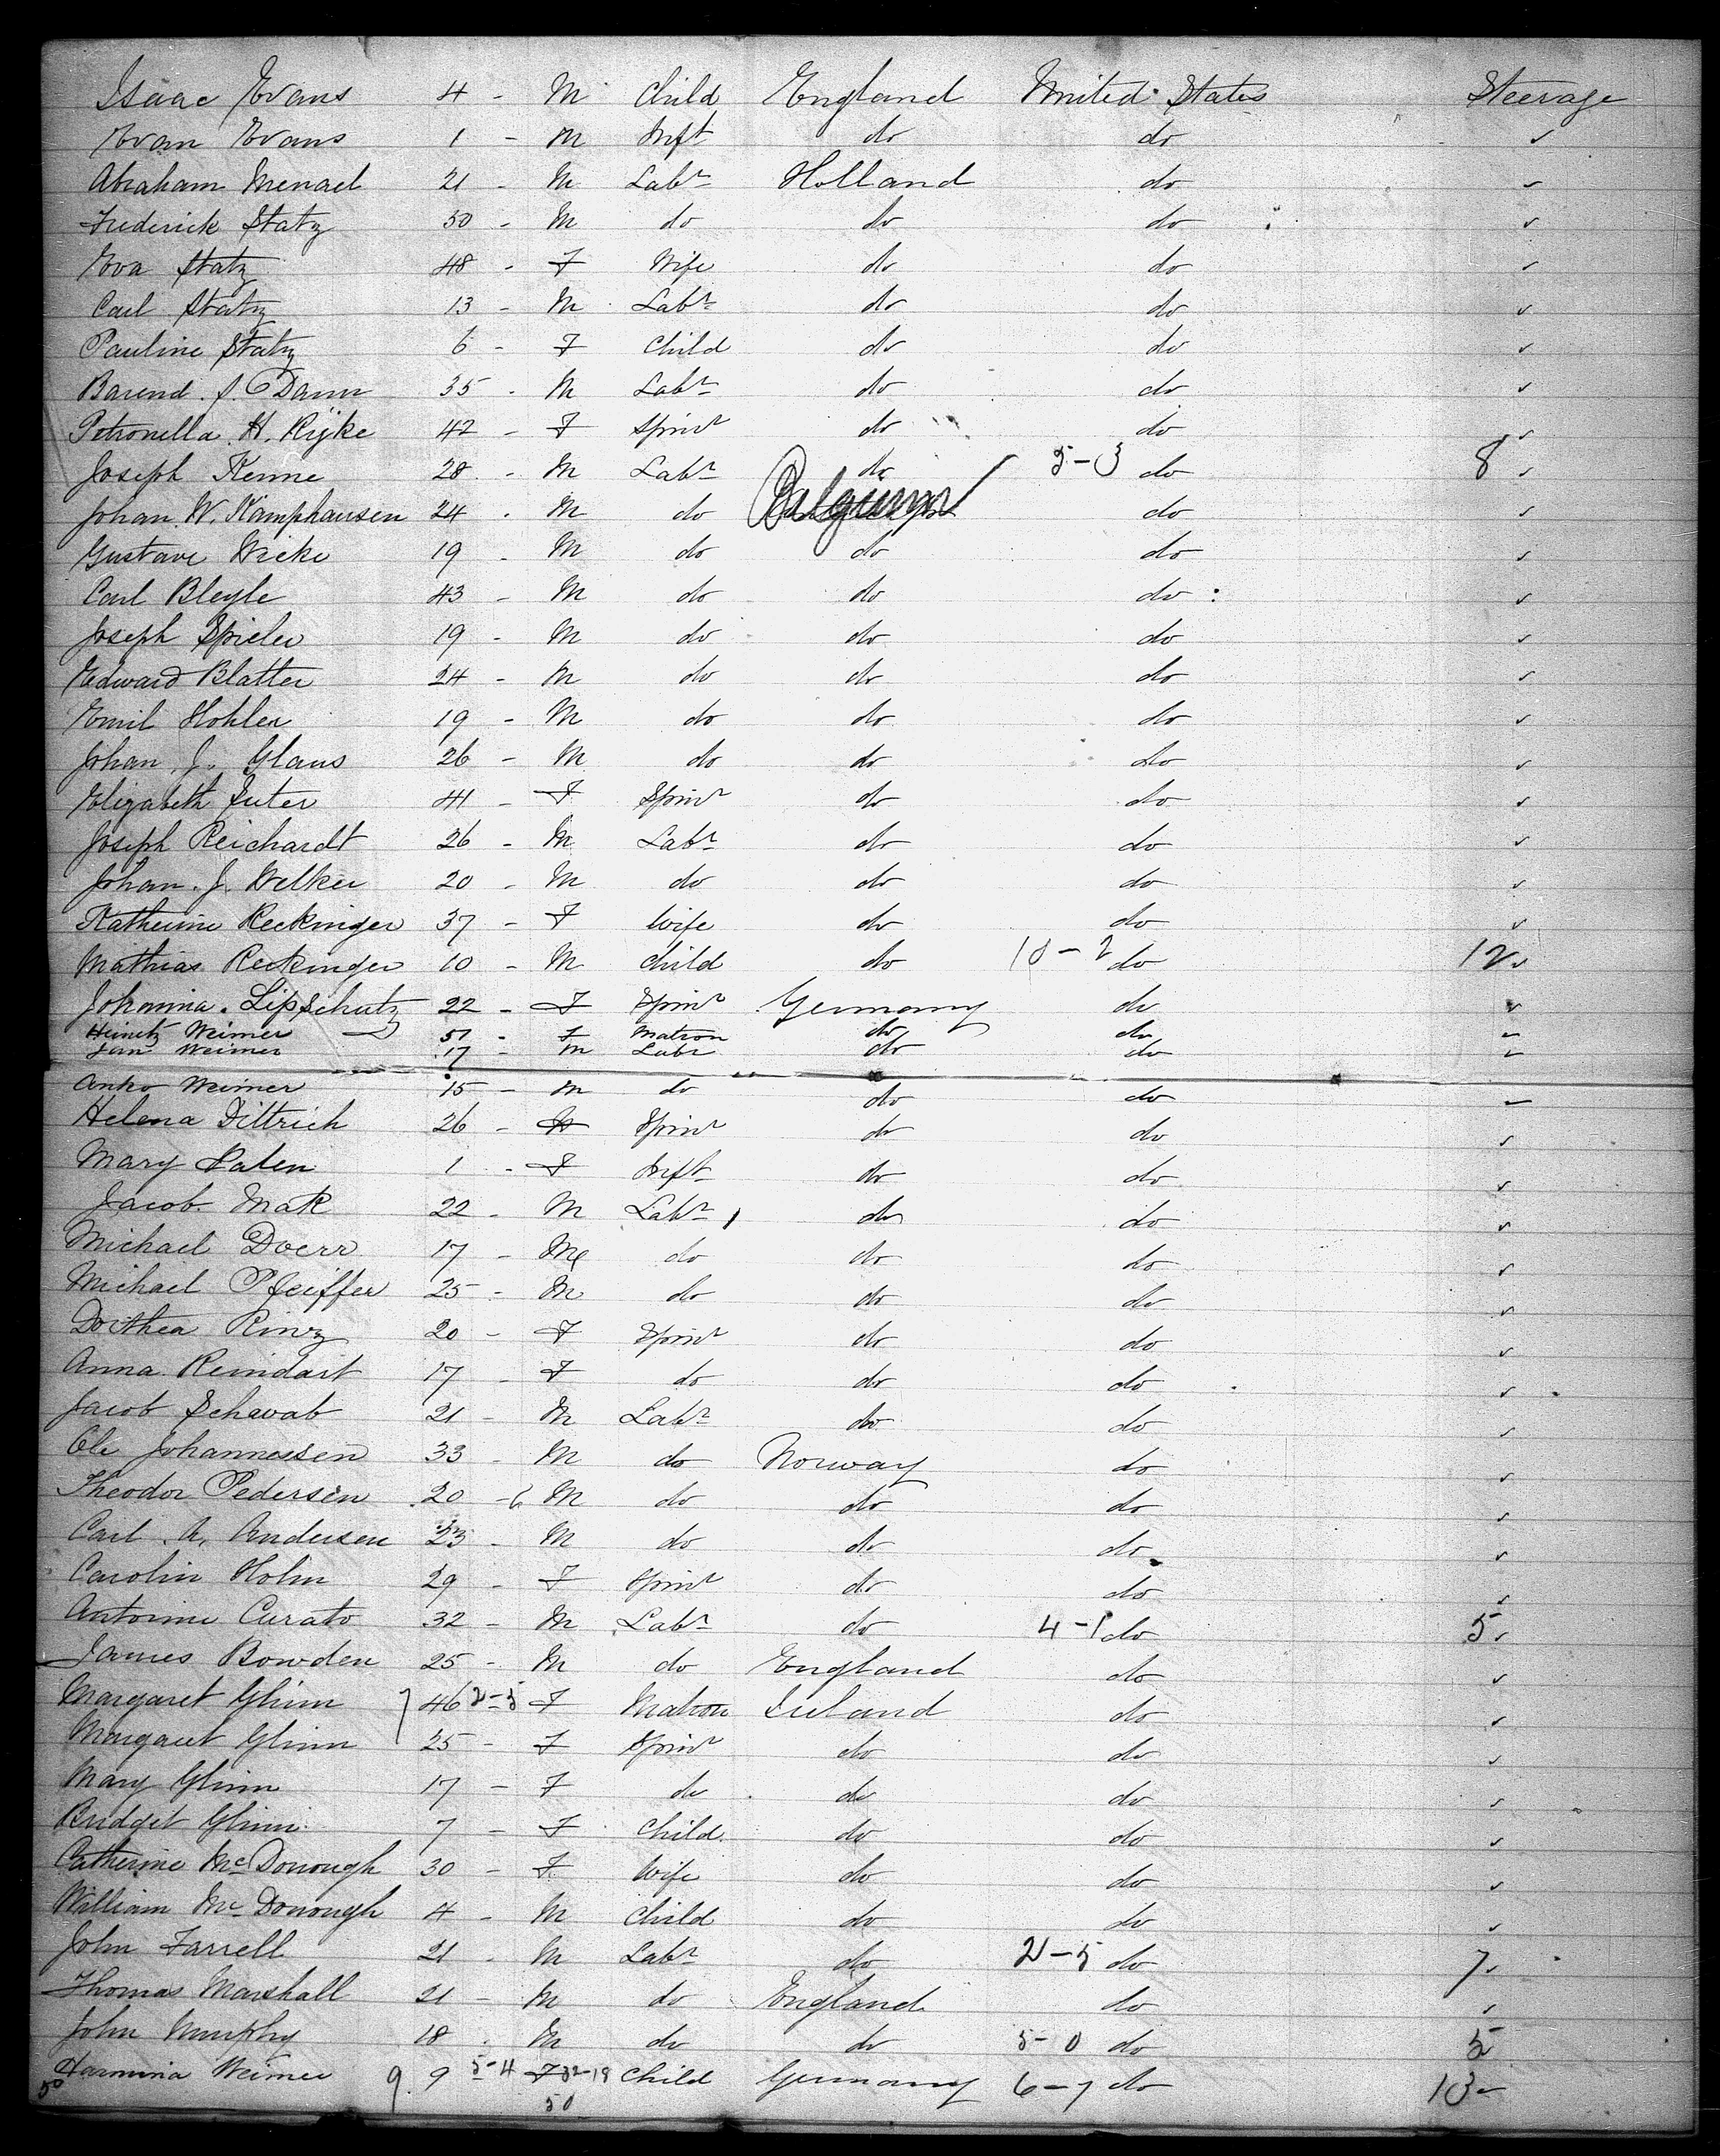 Isaac Evans 4 - M Child England United States Steerage
Evan Evans 1 - M Inft do do ✓
Abraham Menael 21 - M Labr Holland do ✓
Frederick Statz 50 - M do do do ✓
Eva Statz 48 - F Wife do do ✓
Carl Statz 13 - M Labr do do ✓
Pauline Statz 6 - F Child do do ✓
Barend. S. Damm 35 - M Labr do do ✓
Petronella. H. Rijke 42 - F Spinr do do ✓
Joseph Kenne 28 - M Labr do 5-3 do 8 ✓
Johan. W. Kamphausen 24 - M do Belgium do ✓
Gustave Wicke 19 - M do do do ✓
Carl Bleyle 43 - M do do do ✓
Joseph Spieler 19 - M do do do ✓
Edward Blatter 24 - M do do do ✓
Emil Hohler 19 - M do do do ✓
Johan. J. Glaus 26 - M do do do ✓
Elizabeth Suter 41 - F Spinr do do ✓
Joseph Reichardt 26 - M Labr do do ✓
Johan. J. Welker 20 - M do do do ✓
Katherine Reckinger 37 - F Wife do do ✓
Mathias Reckinger 10 - M Child do 10-2 do 12 ✓
Johanna. Lipschutz 22 - F Spinr Germany do ✓
Heinitz Weimer 51 - F Matron do do ✓
Jan Weimer 17 - M Labr do do ✓
Anko Weimer 15 - M do do do ✓
Helena Dittrich 26 - F Spinr do do ✓
Mary Palen 1 - F Inft do do ✓
Jacob Mak 22 - M Labr do do ✓
Michael Doerr 17 - M do do do ✓
Michael Pfeiffer 25 - M do do do ✓
Dorthea Rinz 20 - F Spinr do do ✓
Anna Reindart 17 - F do do do ✓
Jacob Schwab 21 - M Labr do do ✓
Ole Johannessen 33 - M do Norway do ✓
Theodor Pedersen 20 - M do do do ✓
Carl. A. Andersen 23 - M do do do ✓
Carolin Holm 29 - F Spinr do do ✓
Antonine Curato 32 - M Labr do 4-1 do 5 ✓
James Bowden 25 - M do England do ✓
Margaret Glinn 46 2-5 F Matron Ireland do ✓
Margaret Glinn 25 - F Spinr do do ✓
Mary Glinn 17 - F do do do ✓
Bridget Glinn 7 - F Child do do ✓
Catherine McDonough 30 - F Wife do do ✓
William McDonough 4 - M Child do do ✓
John Farrell 21 - M Labr do 2-5 do 7 ✓
Thomas Marshall 21 - M do England do ✓
John Murphy 18 - M do do 5-0 do 5
Harmina Weimer 9 9 5-4 F 32-18 Child Germany 6-7 do 13 ✓
50 50